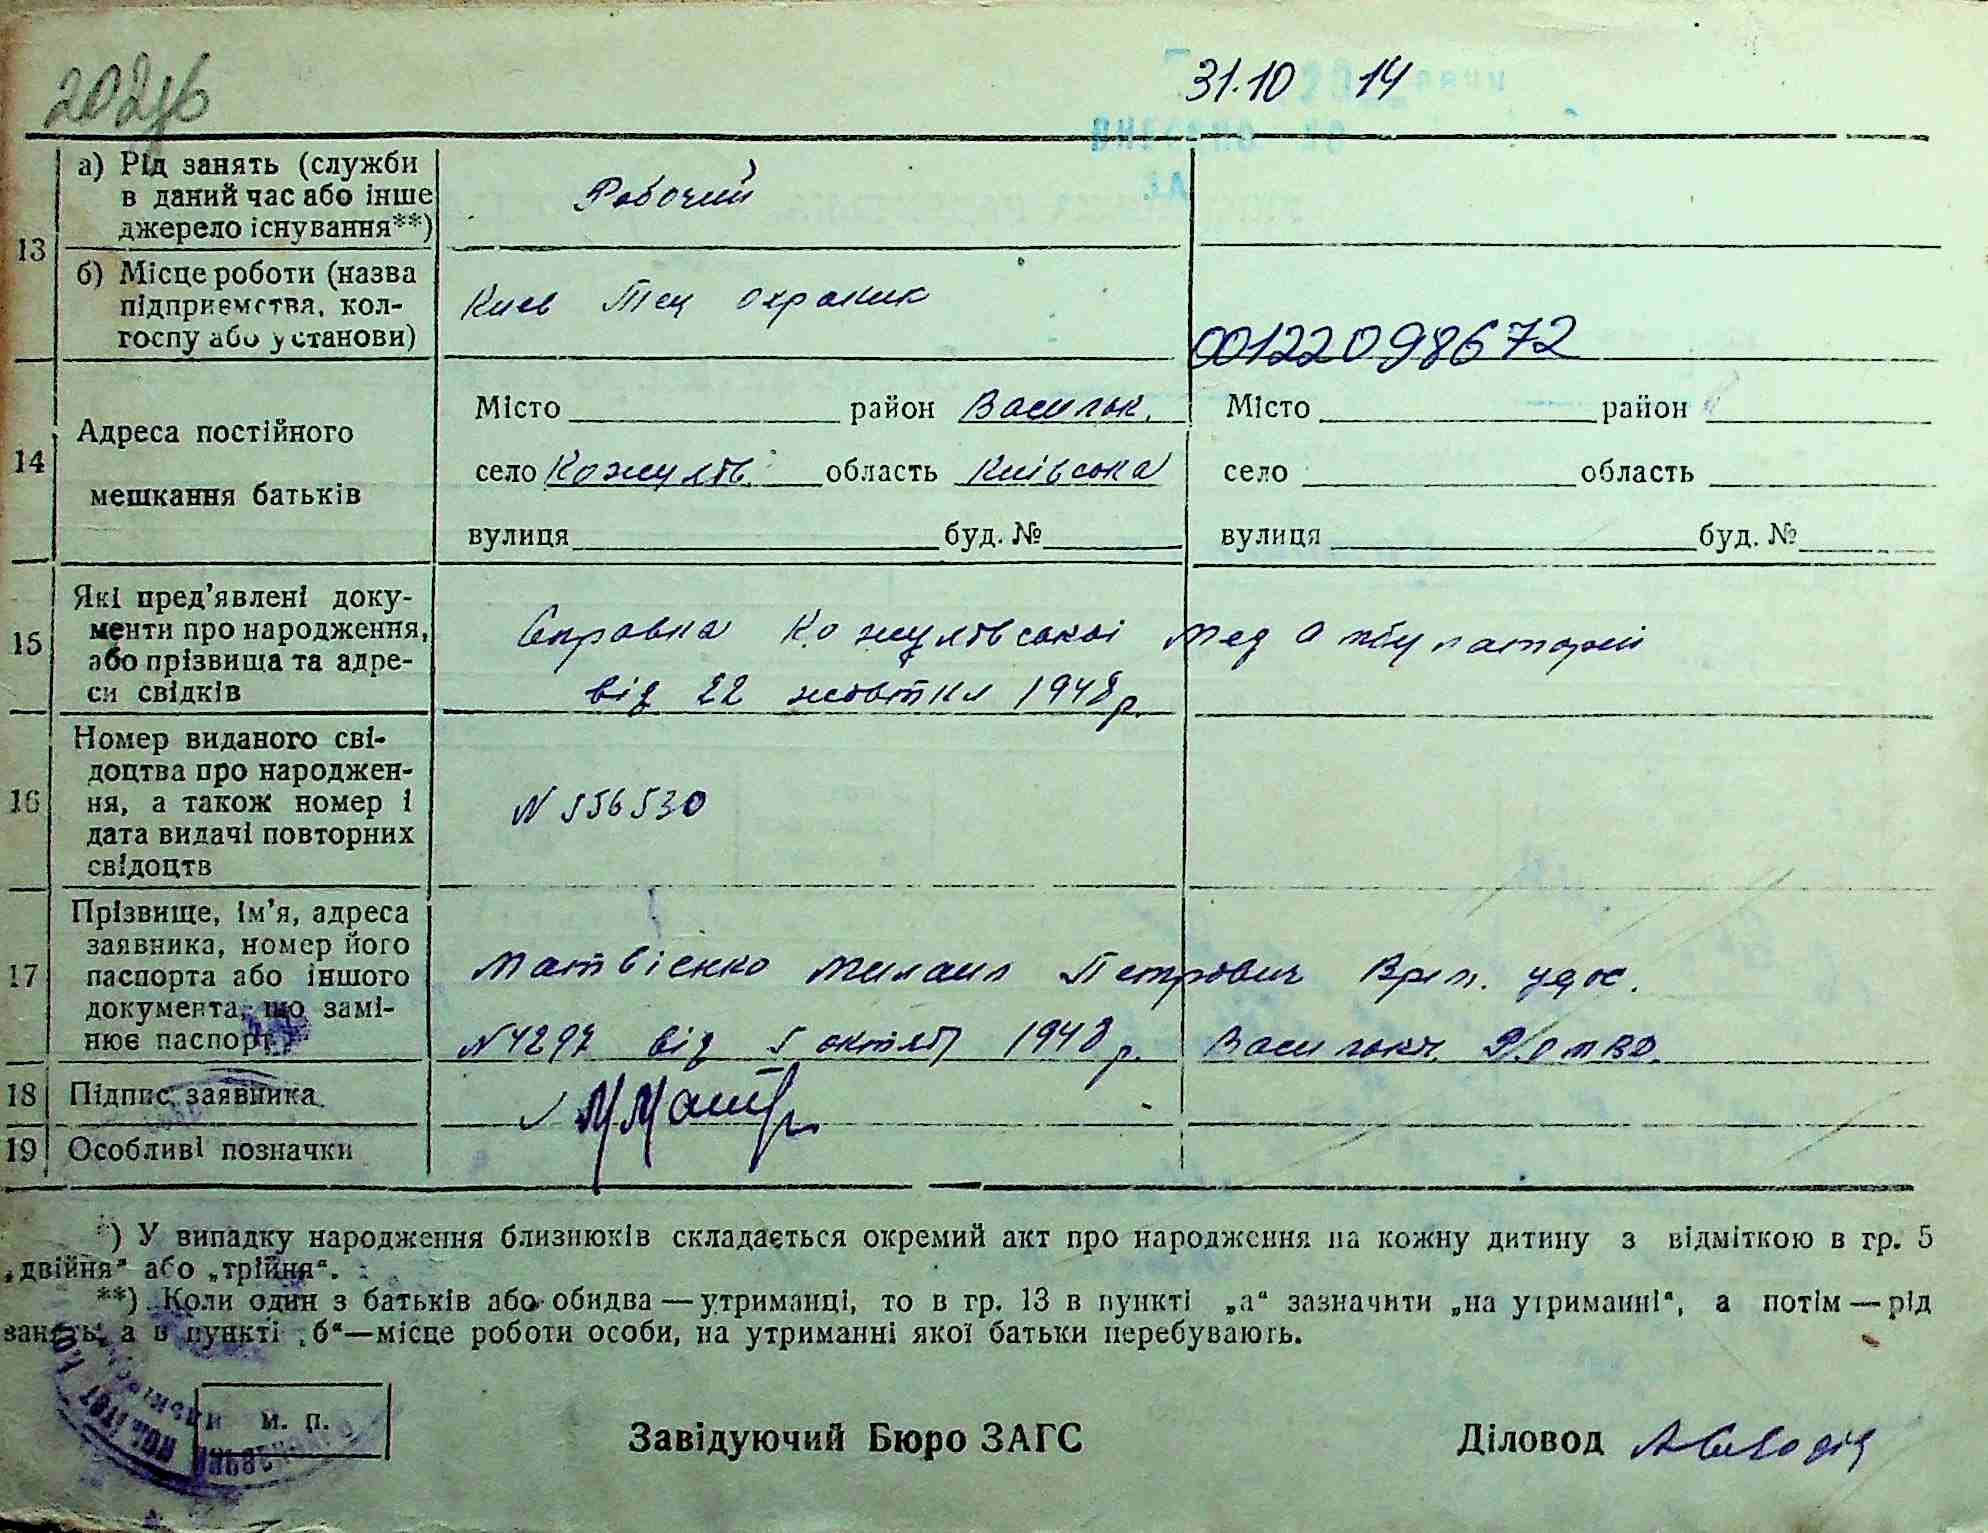 31.10 14
13
а) Рід занять (служби
в даний час або інше
джерело існування**)
Робочий
б) Місце роботи (назва
підприємства, кол-
госпу або установи)
Киев Тец охраник
00122098672
14
Адреса постійного
мешкання батьків
Місто район Васильк.
село область Київська
вулиця буд. №
Місто район
село область
вулиця буд. №
15
Які пред'явлені доку-
менти про народження,
або прізвища та адре-
си свідків
Справка мед амбулаторії
від 22 жовтня 1948 р.
16
Номер виданого сві-
доцтва про народжен-
ня, а також номер і
дата видачі повторних
свідоцтв
N 556530
17
Прізвище, ім'я, адреса
заявника, номер його
паспорта або іншого
документа, що замі-
нює паспорт
Матвієнко Михаил Петрович Врем. удос.
від 5 октяб 1948 р.
18
Підпис заявника
19
Особливі позначки
*) У випадку народження близнюків складається окремий акт про народження на кожну дитину з відміткою в гр. 5
„двійня“ або „трійня“.
**) Коли один з батьків або обидва — утриманці, то в гр. 13 в пункті „а“ зазначити „на утриманні“, а потім — рід
занять, а в пункті „б“—місце роботи особи, на утриманні якої батьки перебувають.
м. п.
Завідуючий Бюро ЗАГС
Діловод